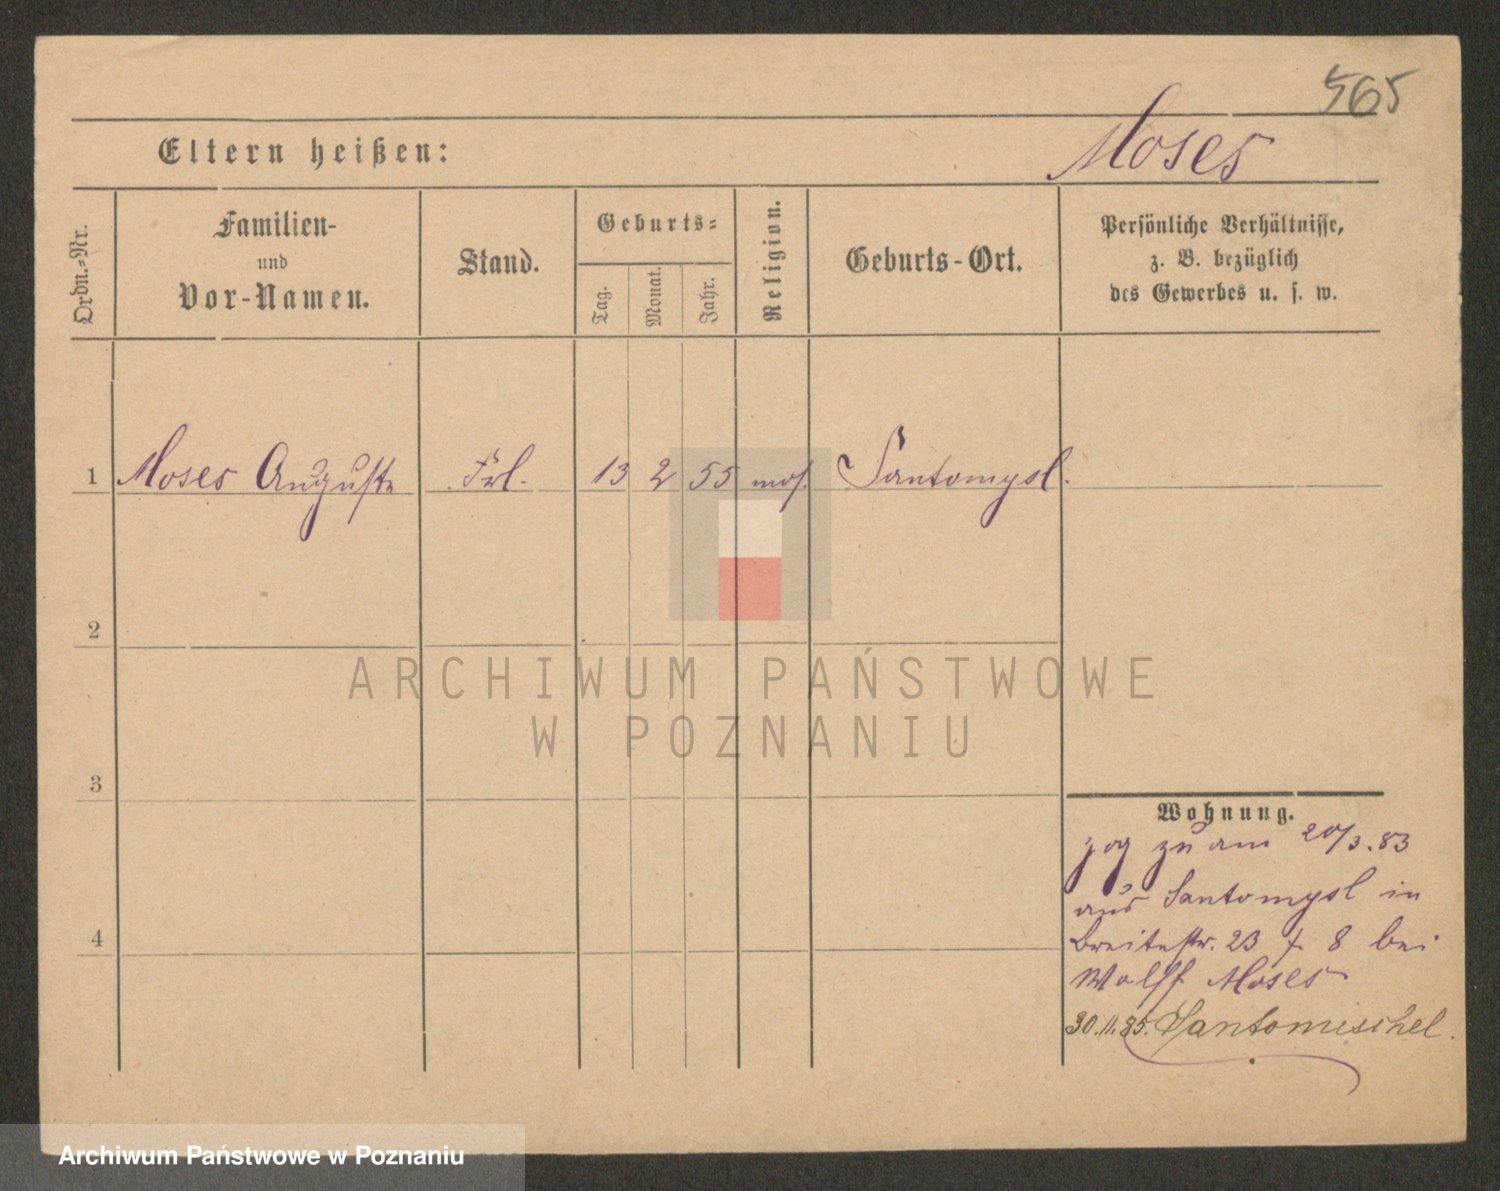 565
Eltern heißen:
Moses
Ordn.-Nr.
Familien-
und
Vor-Namen.
Stand.
Geburts-
Tag.
Monat.
Jahr.
Religion.
Geburts-Ort.
Persönliche Verhältnisse,
z. B. bezüglich
des Gewerbes u. s. w.
1 Moses Auguste Frl. 13 2 55 mos. Santomysl.
2
3
4
Wohnung.
zog zu am 20/3.83
aus Santomysl in
Breitestr. 23 f. 8 bei
Wolff Moses
30.11.85. Santomischel.
ARCHIWUM PAŃSTWOWE
W POZNANIU
Archiwum Państwowe w Poznaniu